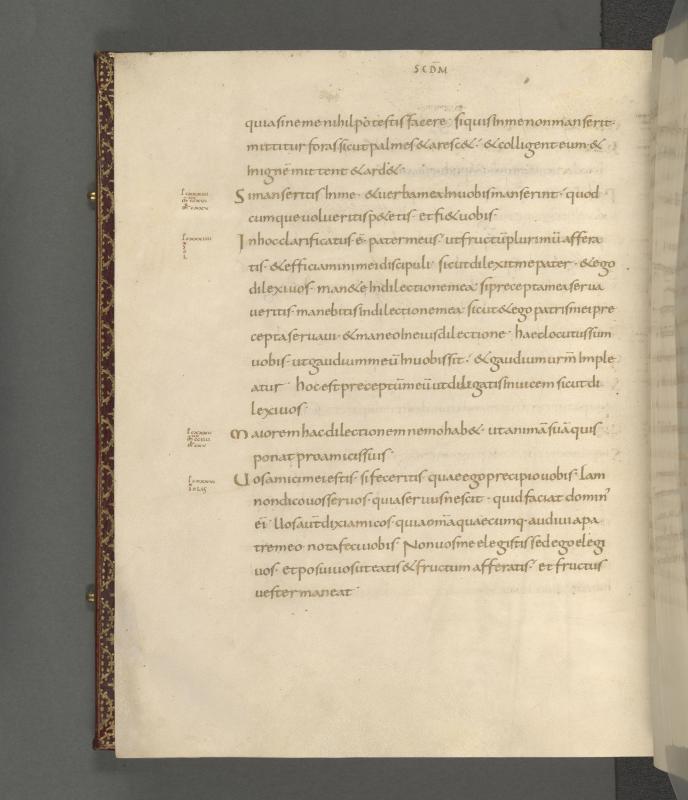 SCDM̄
quia sine me nihil potestis facere · si quis in me non manserit ·
mittitur foras sicut palmes & aresc& · & colligent eum · &
in ignē mittent & ard& ·
Si manseritis in me · & verba mea in vobis manserint · quod
cumque volueritis petetis · et fi& vobis ·
In hoc clarificatus ē pater meus · ut fructū plurimū affera
tis · & efficiamini mei discipuli · sicut dilexit me pater · & ego
dilexi vos · man&e in dilectione mea · si precepta mea serva
veritis · manebitis in dilectione mea · sicut & ego patris mei pre
cepta servavi · & maneo in eius dilectione · haec locutus sum
vobis · ut gaudium meū in vobis sit · & gaudium urm̄ imple
atur · hoc est preceptū meū ut diligatis invicem sicut di
lexi vos ·
Maiorem hac dilectionem nemo hab& · ut animā suā quis
ponat pro amicis suis ·
Vos amici mei estis · si feceritis quae ego precipio vobis · Iam
non dico vos servos · quia servus nescit · quid faciat domin'
ei · Uos aūt dixi amicos · quia om̄a quaecumq · audivi a pa
tre meo · nota feci vobis · Non vos me elegistis sed ego elegi
vos · et posui vos ut eatis & fructum afferatis · et fructus
vester maneat ·